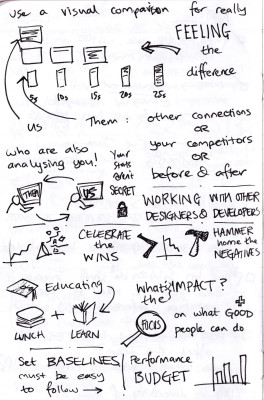 use a visual comparison for really
FEELING
the
difference
5s 10s 15s 20s 25s
US
Them: other connections
OR
your competitors
OR
before & after
who are also
analysing you!
Your
stats
aren't
SECRET
THEM
US
WORKING WITH OTHER
DESIGNERS & DEVELOPERS
CELEBRATE
the
WINS
HAMMER
home the
NEGATIVES
Educating
LUNCH + LEARN
What's the IMPACT?
FOCUS
on what GOOD
people can do
Set BASELINES
must be easy
to follow →
Performance
BUDGET